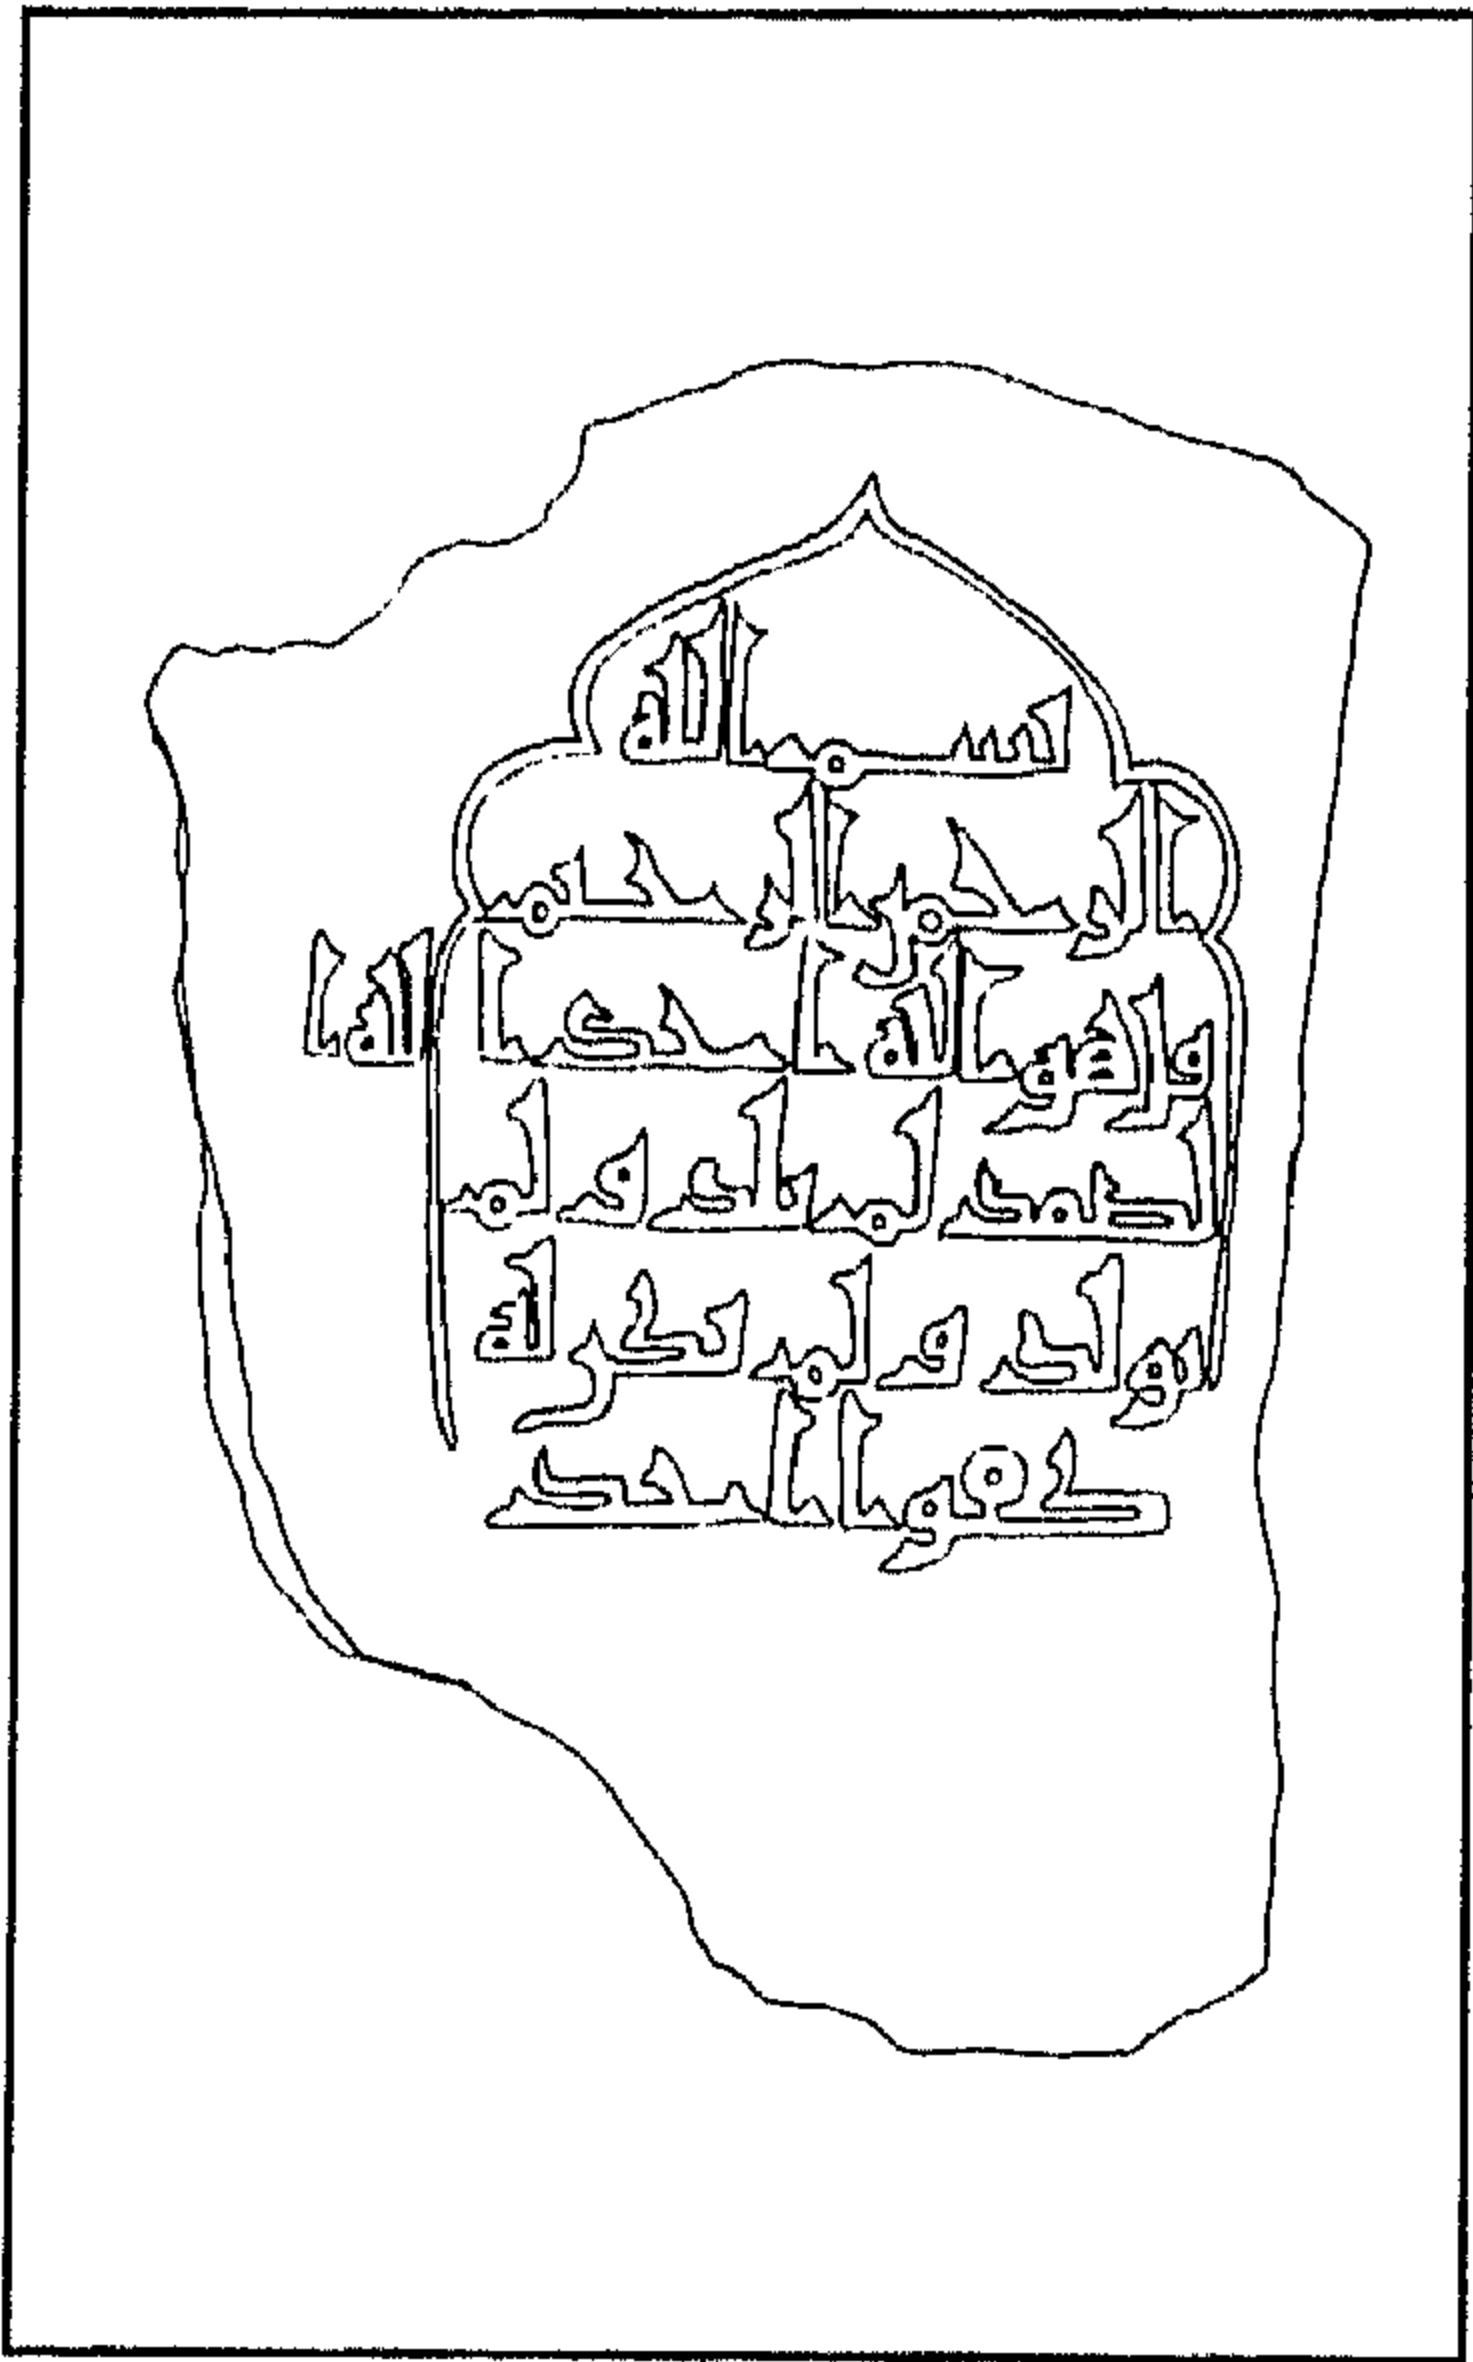 بسم الله
الرحمن الرحيم
قل هو الله احد الله ا
لصمد لم يلد و لم
يو لد و لم يكن له
كفوا احد